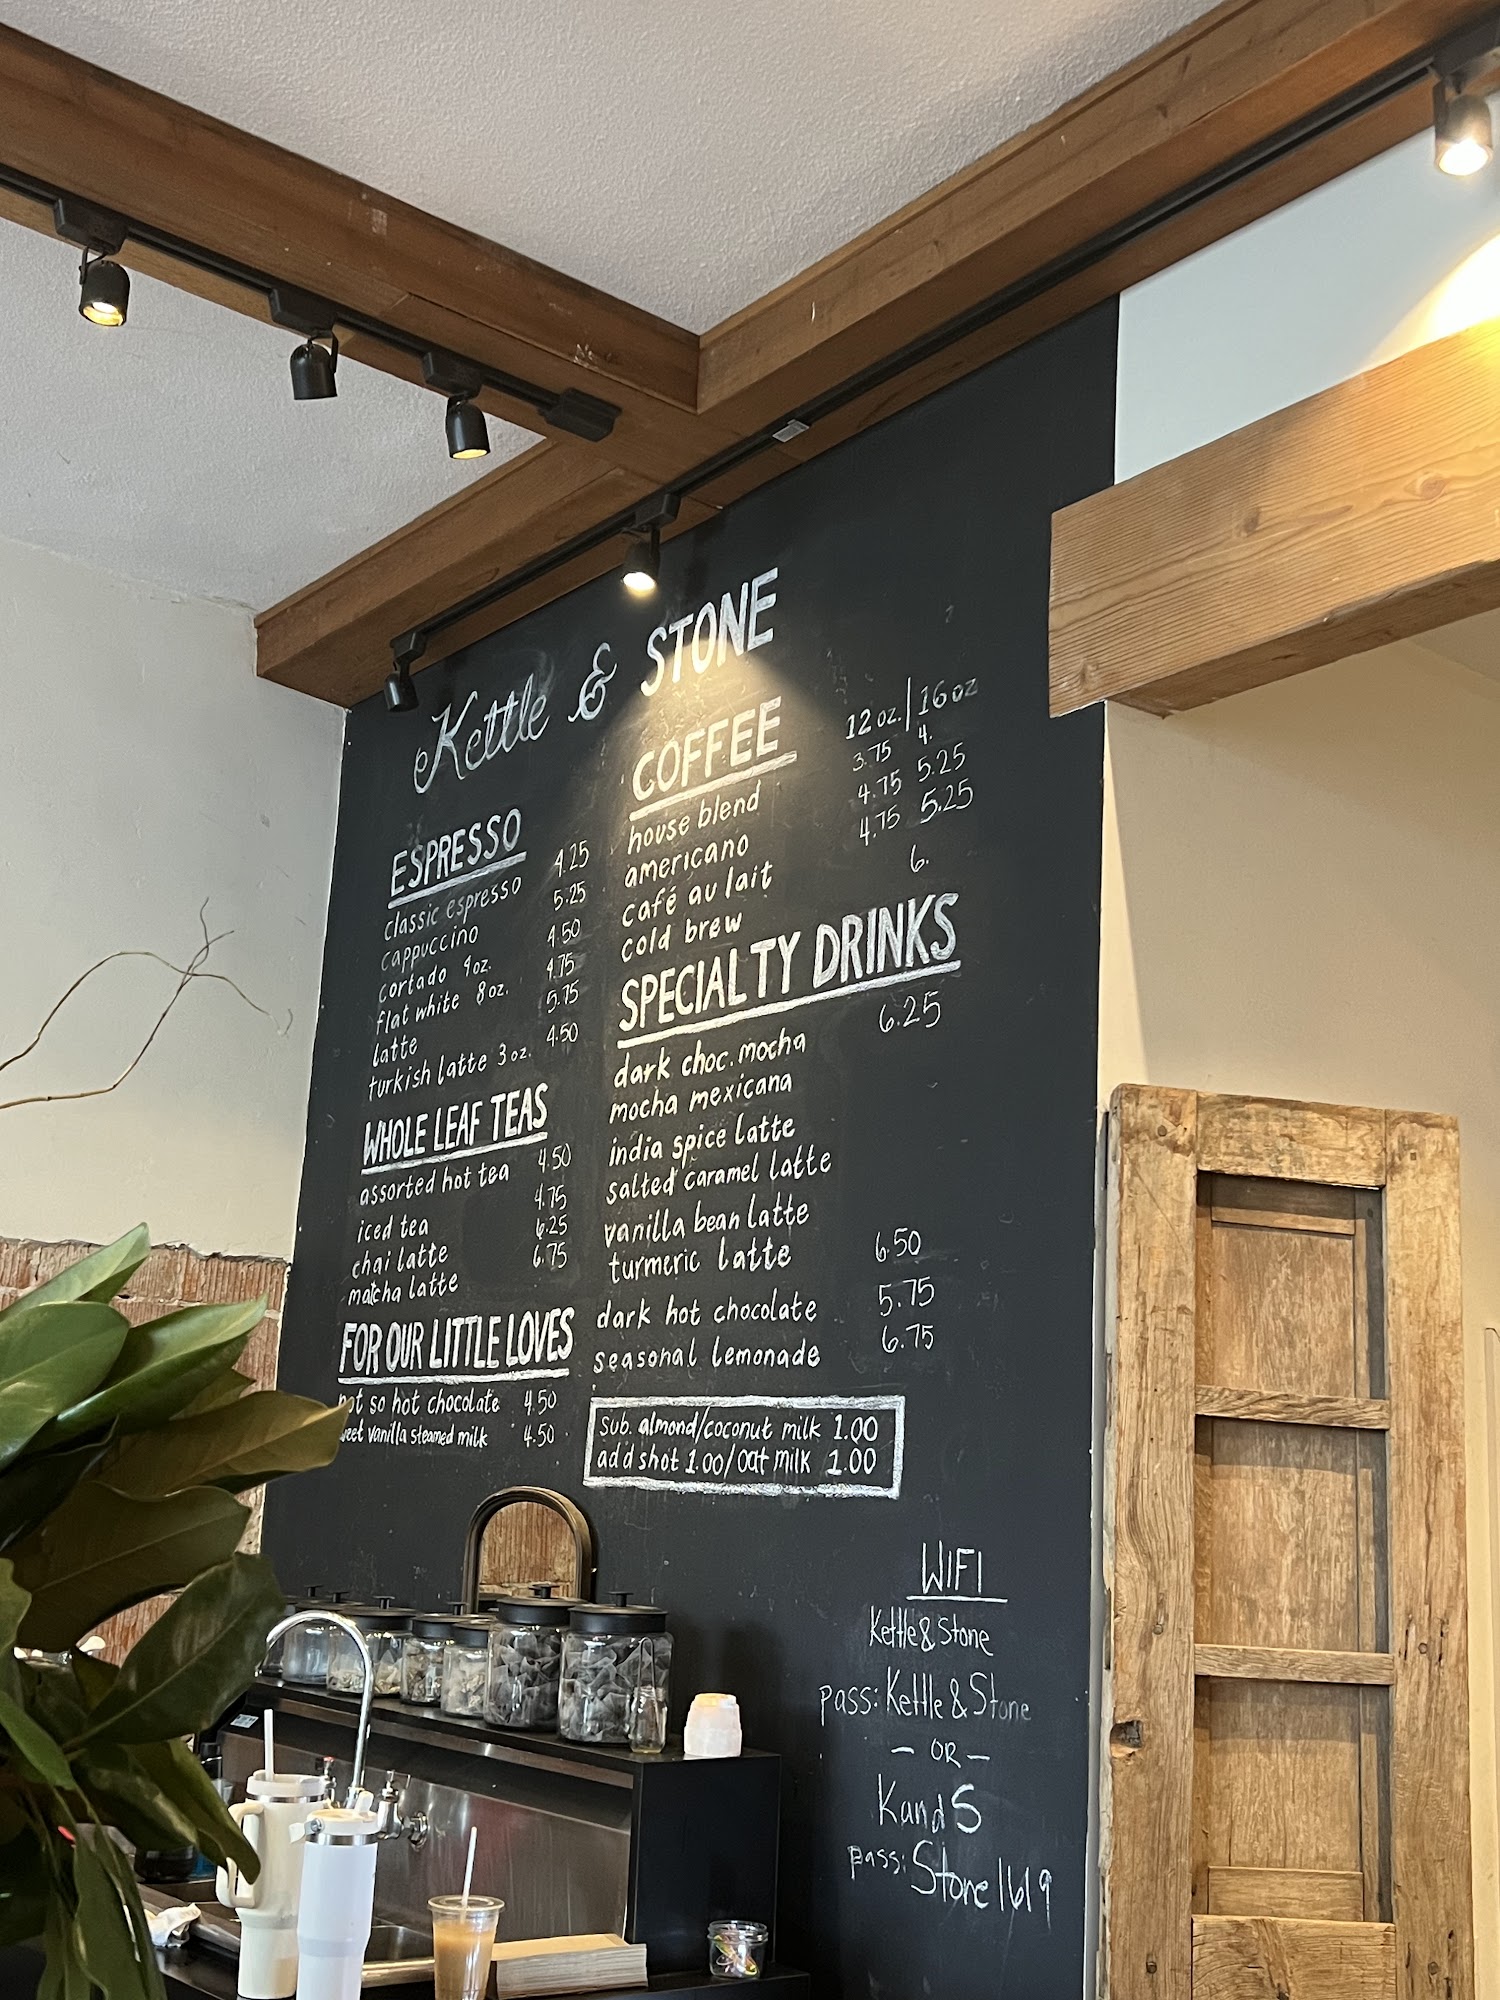 Kettle & STONE
ESPRESSO
classic espresso 4.25
cappuccino 5.25
cortado 4oz. 4.50
flat white 8oz. 4.75
latte 5.75
turkish latte 3oz. 4.50
WHOLE LEAF TEAS
assorted hot tea 4.50
iced tea 4.75
chai latte 6.25
matcha latte 6.75
FOR OUR LITTLE LOVES
not so hot chocolate 4.50
vanilla steamed milk 4.50
COFFEE 12oz. | 16oz
house blend 3.75 4.
americano 4.75 5.25
café au lait 4.75 5.25
cold brew 6.
SPECIALTY DRINKS
dark choc. mocha 6.25
mocha mexicana
india spice latte
salted caramel latte
vanilla bean latte
turmeric latte 6.50
dark hot chocolate 5.75
seasonal lemonade 6.75
Sub. almond/coconut milk 1.00
add shot 1.00/oat milk 1.00
WIFI
Kettle&Stone
pass: Kettle&Stone
- OR -
KandS
pass: Stone1619